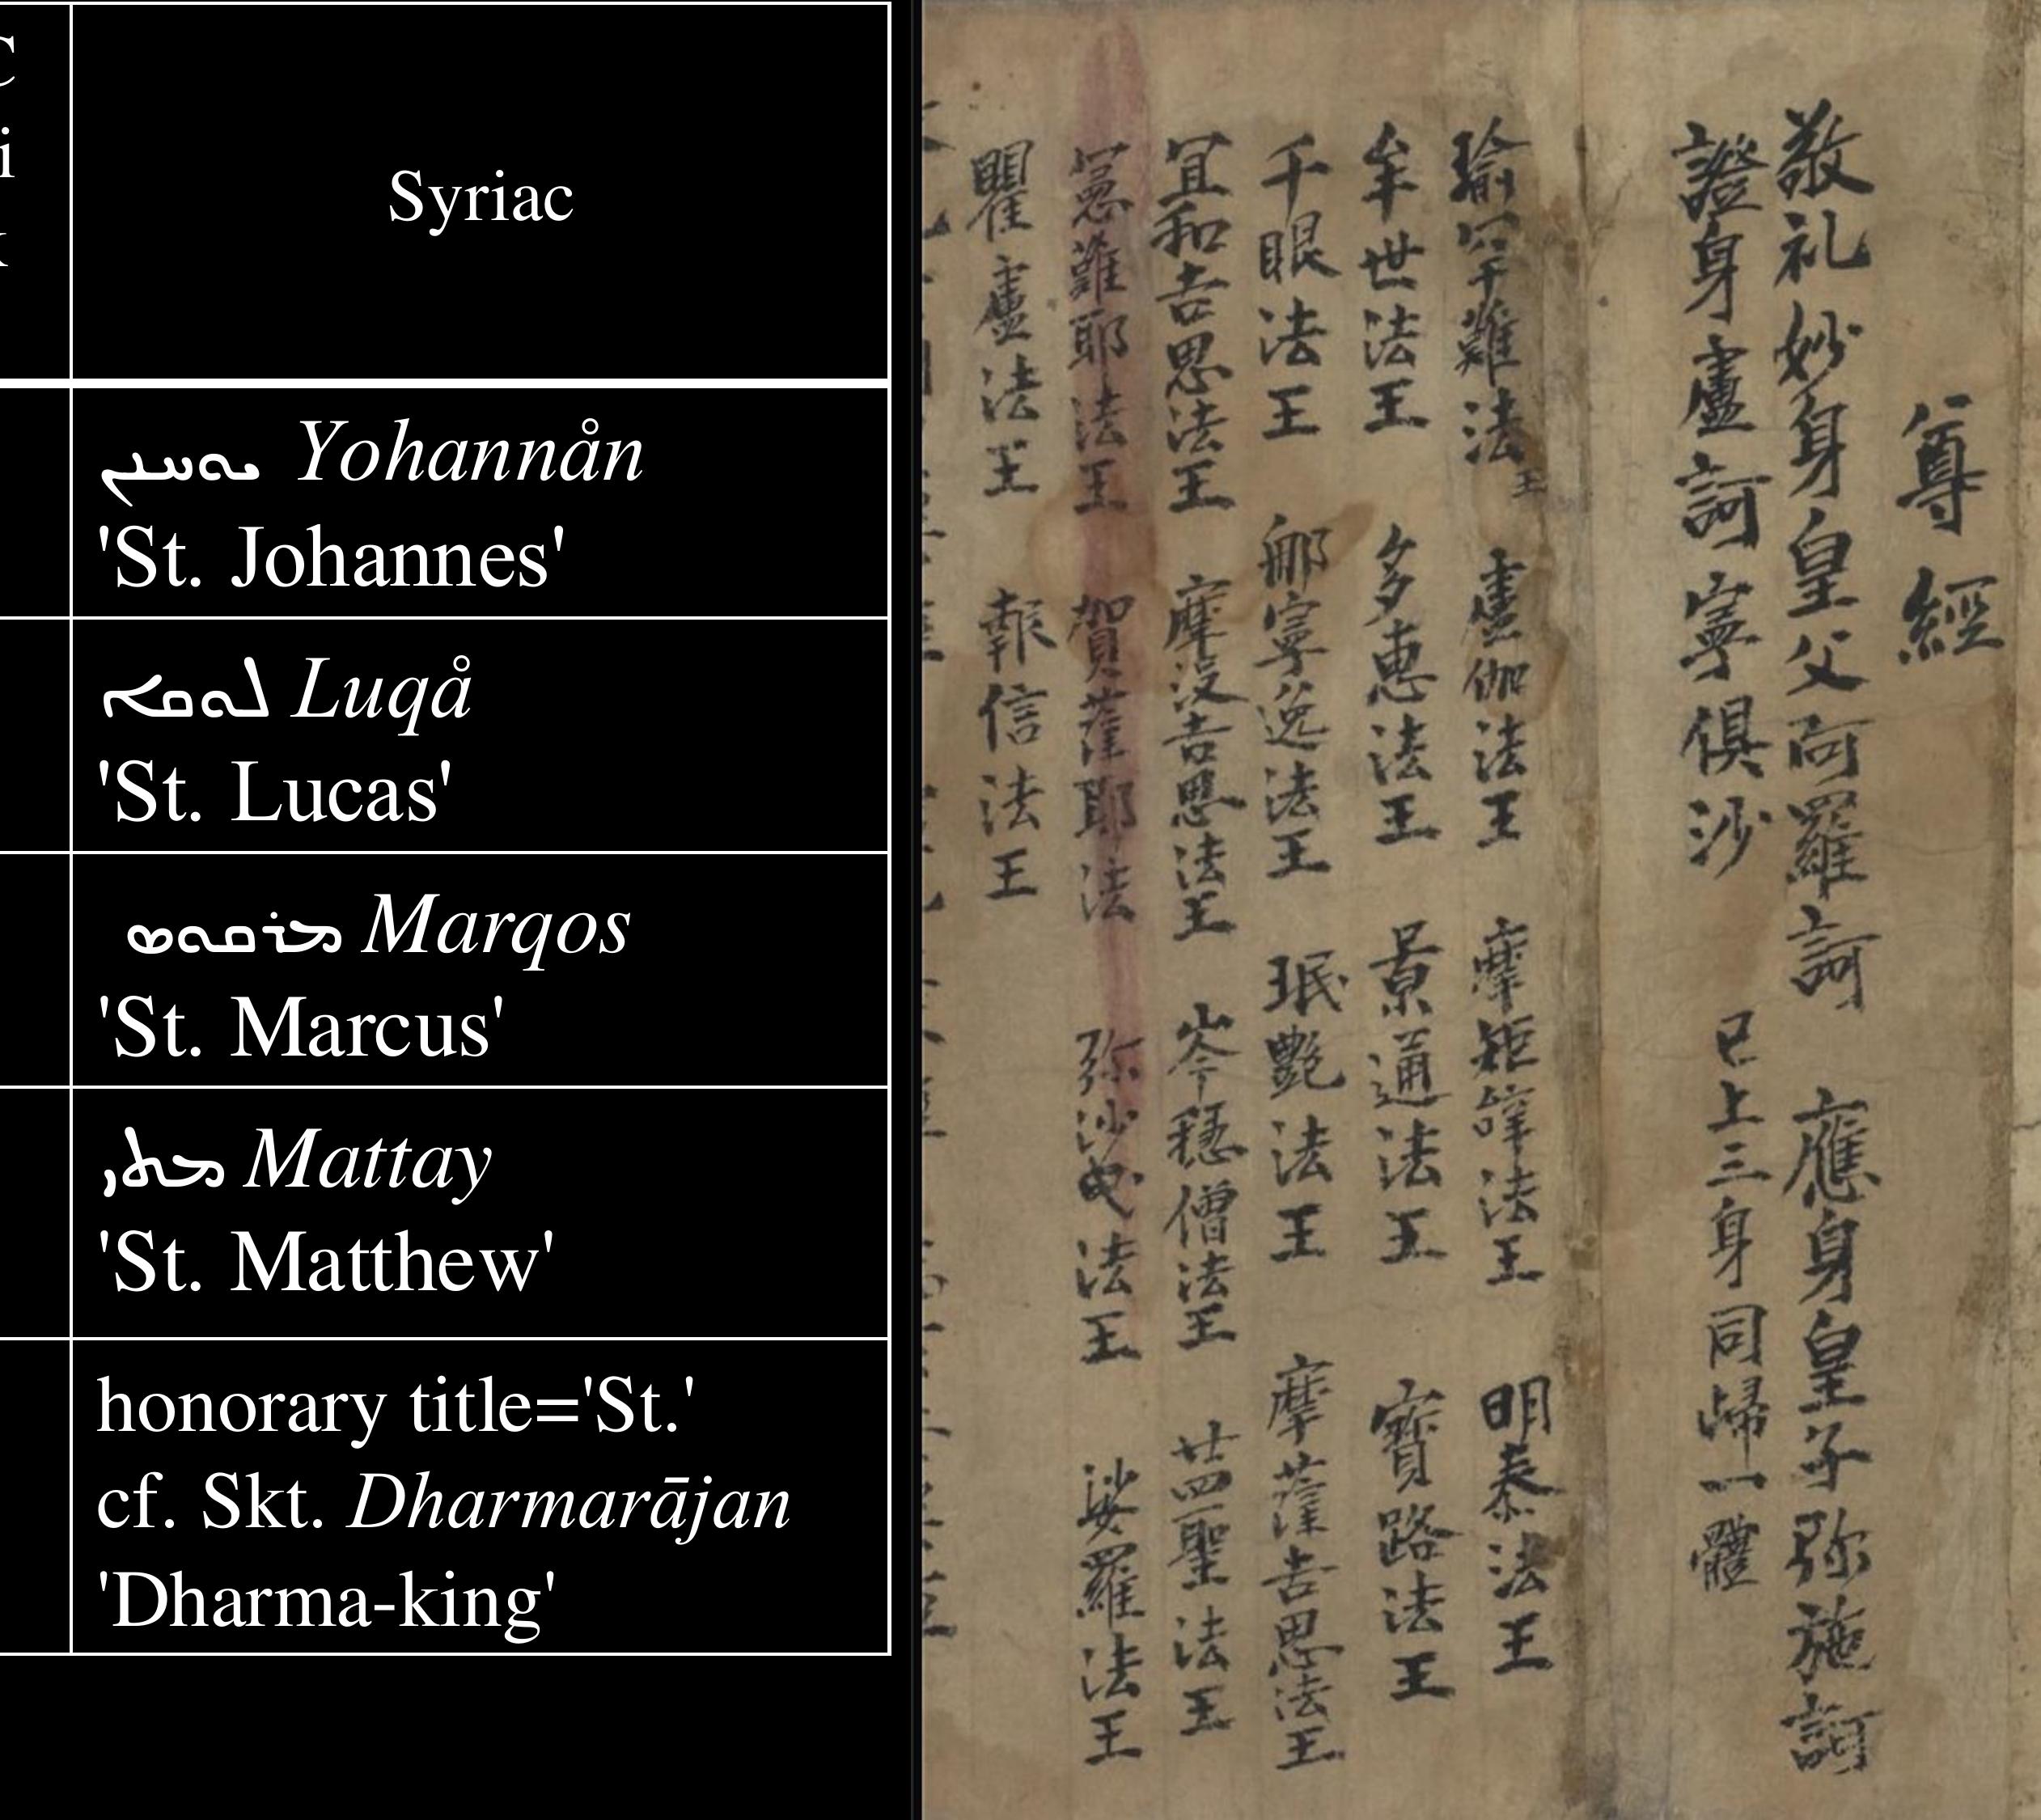 Syriac
ܝܘܚܢܢ Yohannån
'St. Johannes'
ܠܘܩܐ Luqå
'St. Lucas'
ܡܪܩܘܣ Marqos
'St. Marcus'
ܡܬܝ Mattay
'St. Matthew'
honorary title='St.'
cf. Skt. Dharmarājan
'Dharma-king'
尊經
敬礼妙身皇父阿羅訶 應身皇子弥施訶
證身盧訶寧俱沙 已上三身同歸一體
瑜罕難法王 盧伽法王 摩矩辭法王 明泰法王
牟世法王 多惠法王 景通法王 寶路法王
千眼法王 那寧逸法王 珉艷法王 摩薩吉思法王
宜和吉思法王 摩没吉思法王 岑穩僧法王 廿四聖法王
憲難耶法王 賀薩耶法 弥沙曳法王 娑羅法王
瞿盧法王 報信法王